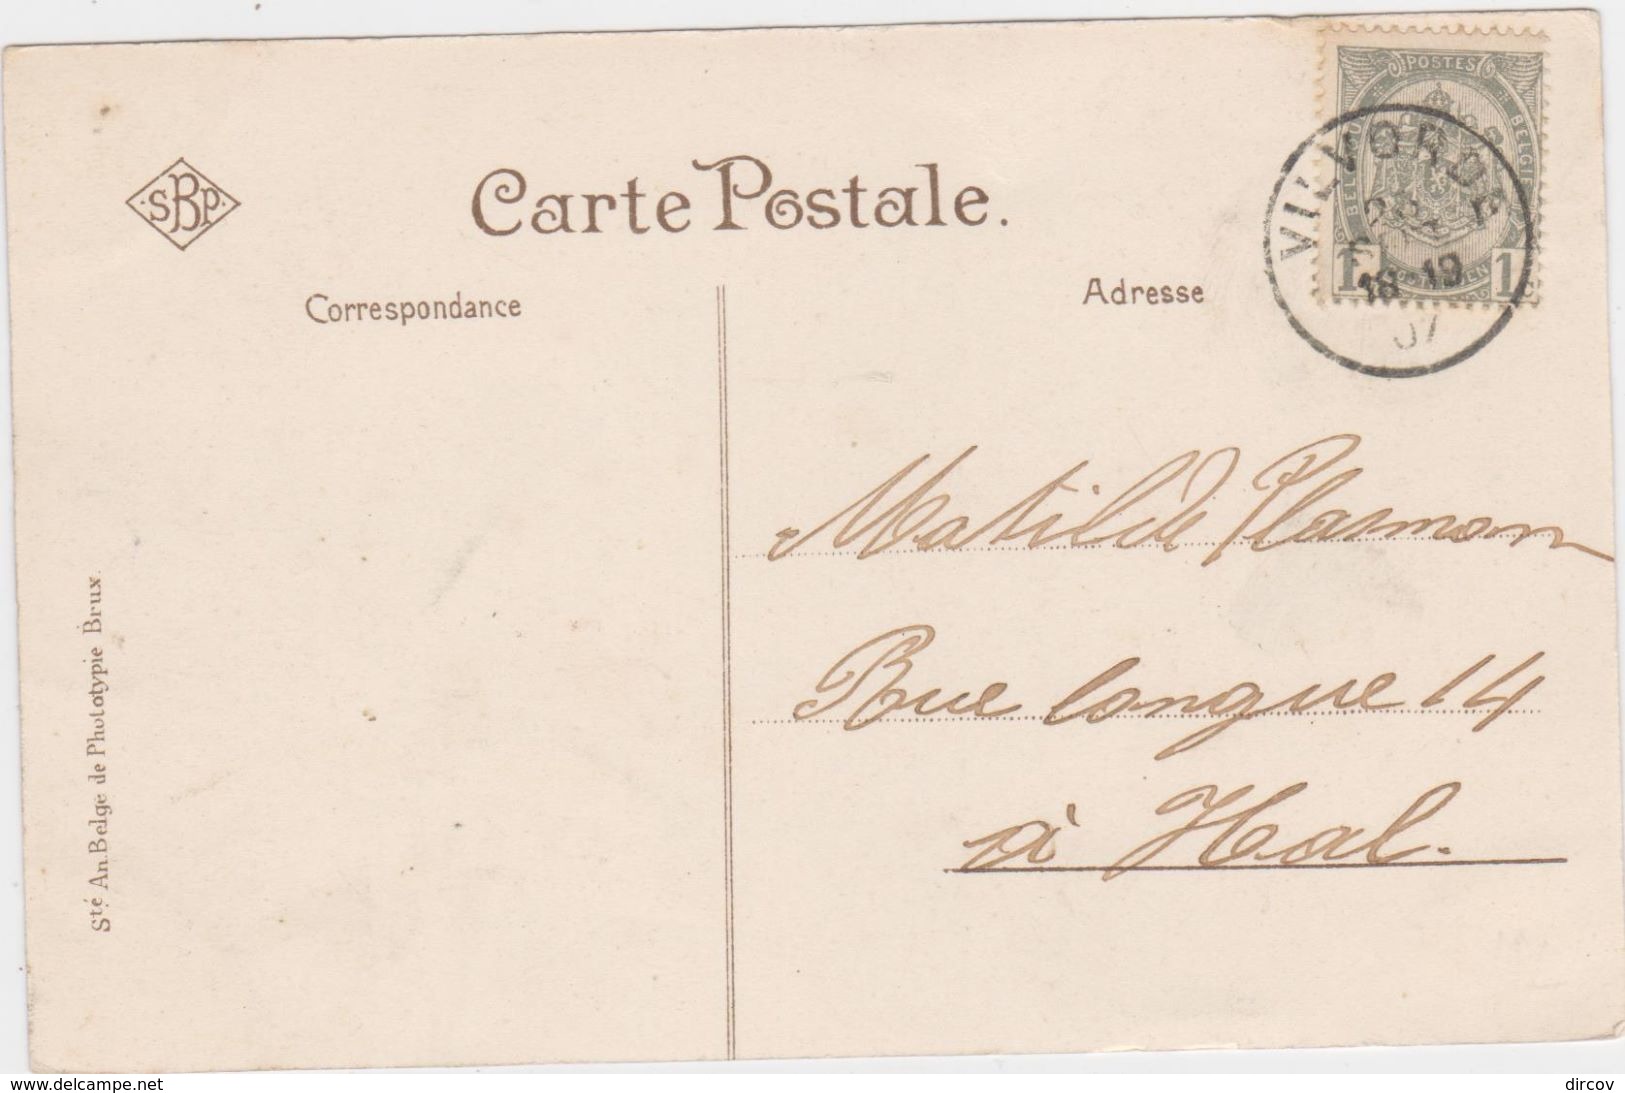 SBP
Carte Postale.
Correspondance
Adresse
POSTES
BELGIQUE
BELGIE
1
1
VILVORDE
18-19
07
Matilde Plasman
Rue longue 14
à Hal.
Sté An. Belge de Phototypie Brux.
www.delcampe.net
dircov